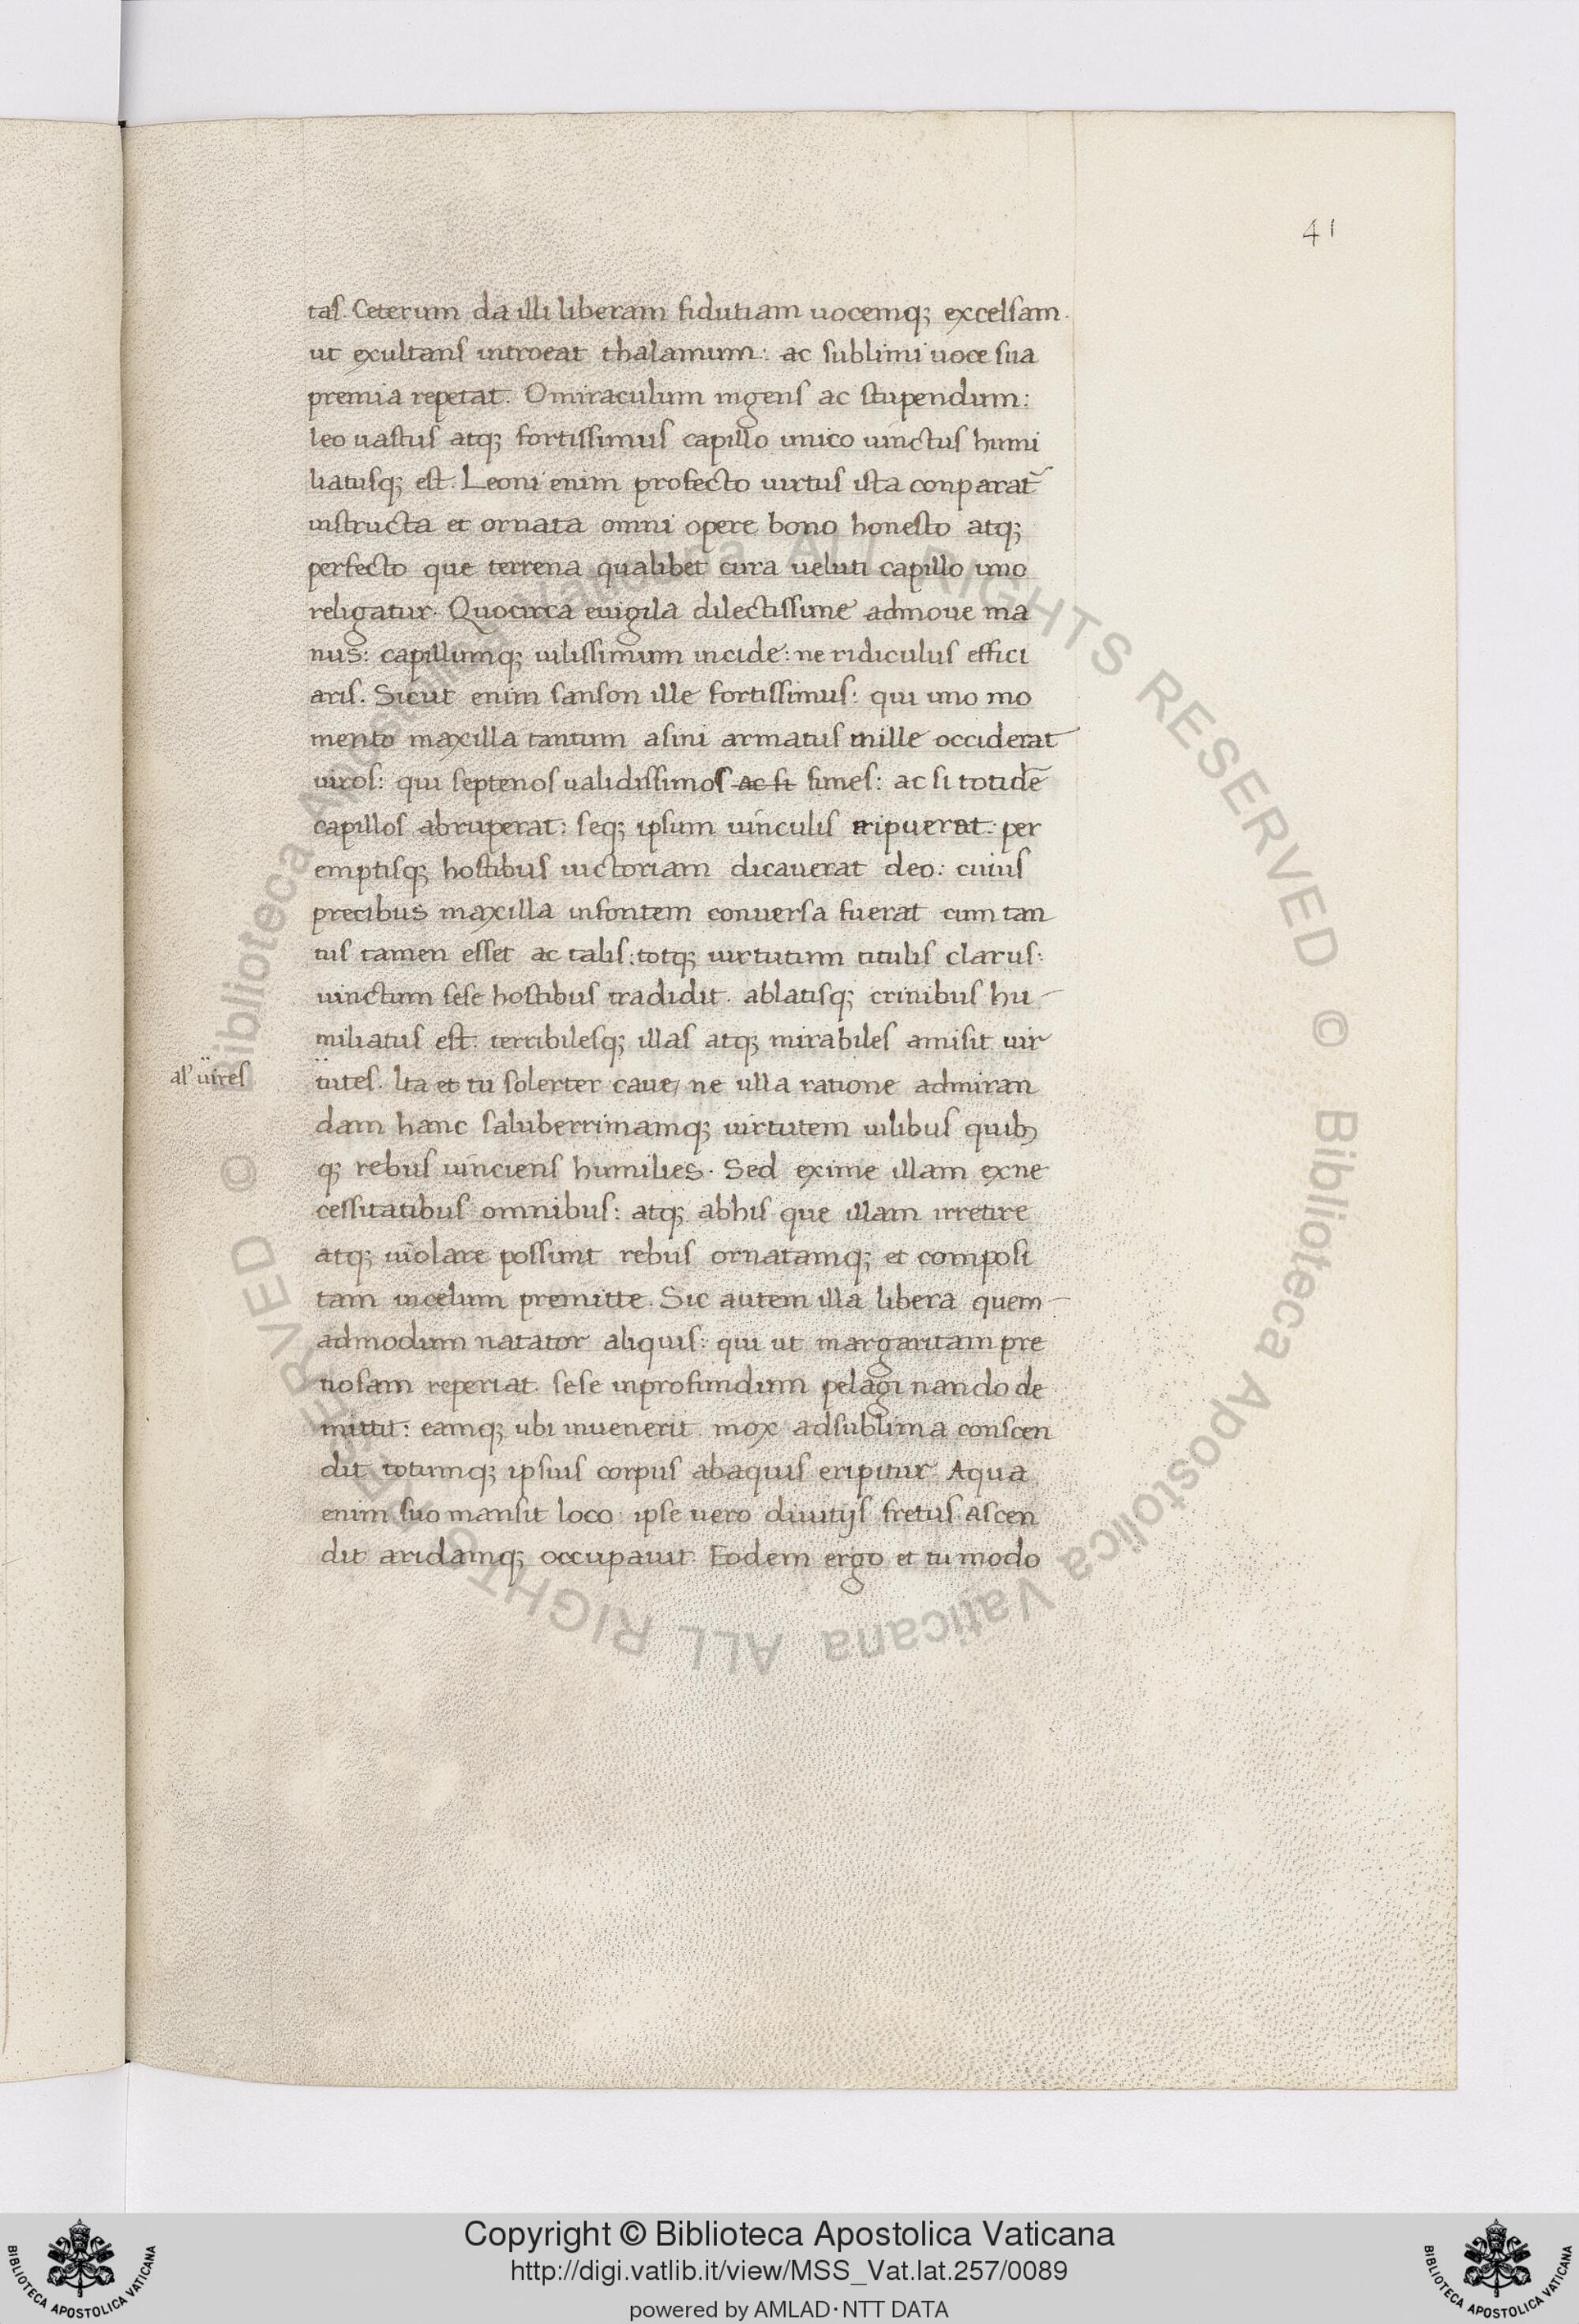 41
taſ. Ceterum da illi liberam fidutiam uocemq; excelſam.
ut exultanſ introeat thalamum: ac ſublimi uoce ſua
premia repetat. O miraculum ingenſ ac ſtupendum:
leo uaſtuſ atq; fortiſſimuſ capillo unico uinctuſ humi
liatuſq; eſt. Leoni enim profecto uirtuſ iſta conparat᷑
inſtructa et ornata omni opere bono honeſto atq;
perfecto que terrena qualibet cura ueluti capillo uno
religatur. Quocirca euigila dilectiſſime admoue ma
nus: capillumq; uiliſſimum incide: ne ridiculuſ effici
ariſ. Sicut enim ſanſon ille fortiſſimuſ: qui uno mo
mento maxilla tantum aſini armatuſ mille occiderat
uiroſ: qui ſeptenoſ ualidiſſimoſ ac ſi funeſ: ac ſi totidē
capilloſ abruperat: ſeq; ipſum uinculiſ eripuerat: per
emptiſq; hoſtibuſ uictoriam dicauerat deo: cuiuſ
precibus maxilla infontem conuerſa fuerat cum tan
tuſ tamen eſſet ac taliſ: totq; uirtutum tituliſ claruſ:
uinctum ſeſe hoſtibuſ tradidit. ablatiſq; crinibuſ hu
miliatuſ eſt: terribileſq; illaſ atq; mirabileſ amiſit uir
al' uireſ
tuteſ. Ita et tu ſolerter caue, ne ulla ratione admiran
dam hanc ſaluberrimamq; uirtutem uilibuſ quibꝫ
q; rebuſ uincienſ humilies. Sed exime illam exne
ceſſitatibuſ omnibuſ: atq; abhiſ que illam irretire
atq; uiolare poſſunt rebuſ ornatamq; et compoſi
tam incelum premitte. Sic autem illa libera quem
admodum natator aliquiſ: qui ut margaritam pre
tioſam reperiat. ſeſe inprofundum pelagi nando de
mittit: eamq; ubi inuenerit. mox adſublima conſcen
dit totumq; ipſiuſ corpuſ abaquiſ eripitur. Aqua
enim ſuo manſit loco: ipſe uero diuitijſ fretuſ aſcen
dit aridamq; occupauit. Eodem ergo et tu modo
© Biblioteca Apostolica Vaticana ALL RIGHTS RESERVED © Biblioteca Apostolica Vaticana ALL RIGHTS RESERVED
BIBLIOTECA APOSTOLICA VATICANA
Copyright © Biblioteca Apostolica Vaticana
http://digi.vatlib.it/view/MSS_Vat.lat.257/0089
powered by AMLAD·NTT DATA
BIBLIOTECA APOSTOLICA VATICANA